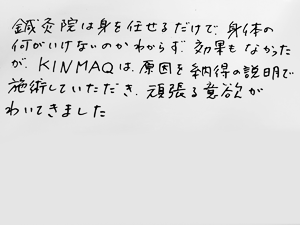 鍼灸院は身を任せるだけで、身体の
何がいけないのかわからず、効果もなかった
が、KINMAQは、原因を納得の説明で
施術していただき、頑張る意欲が
わいてきました